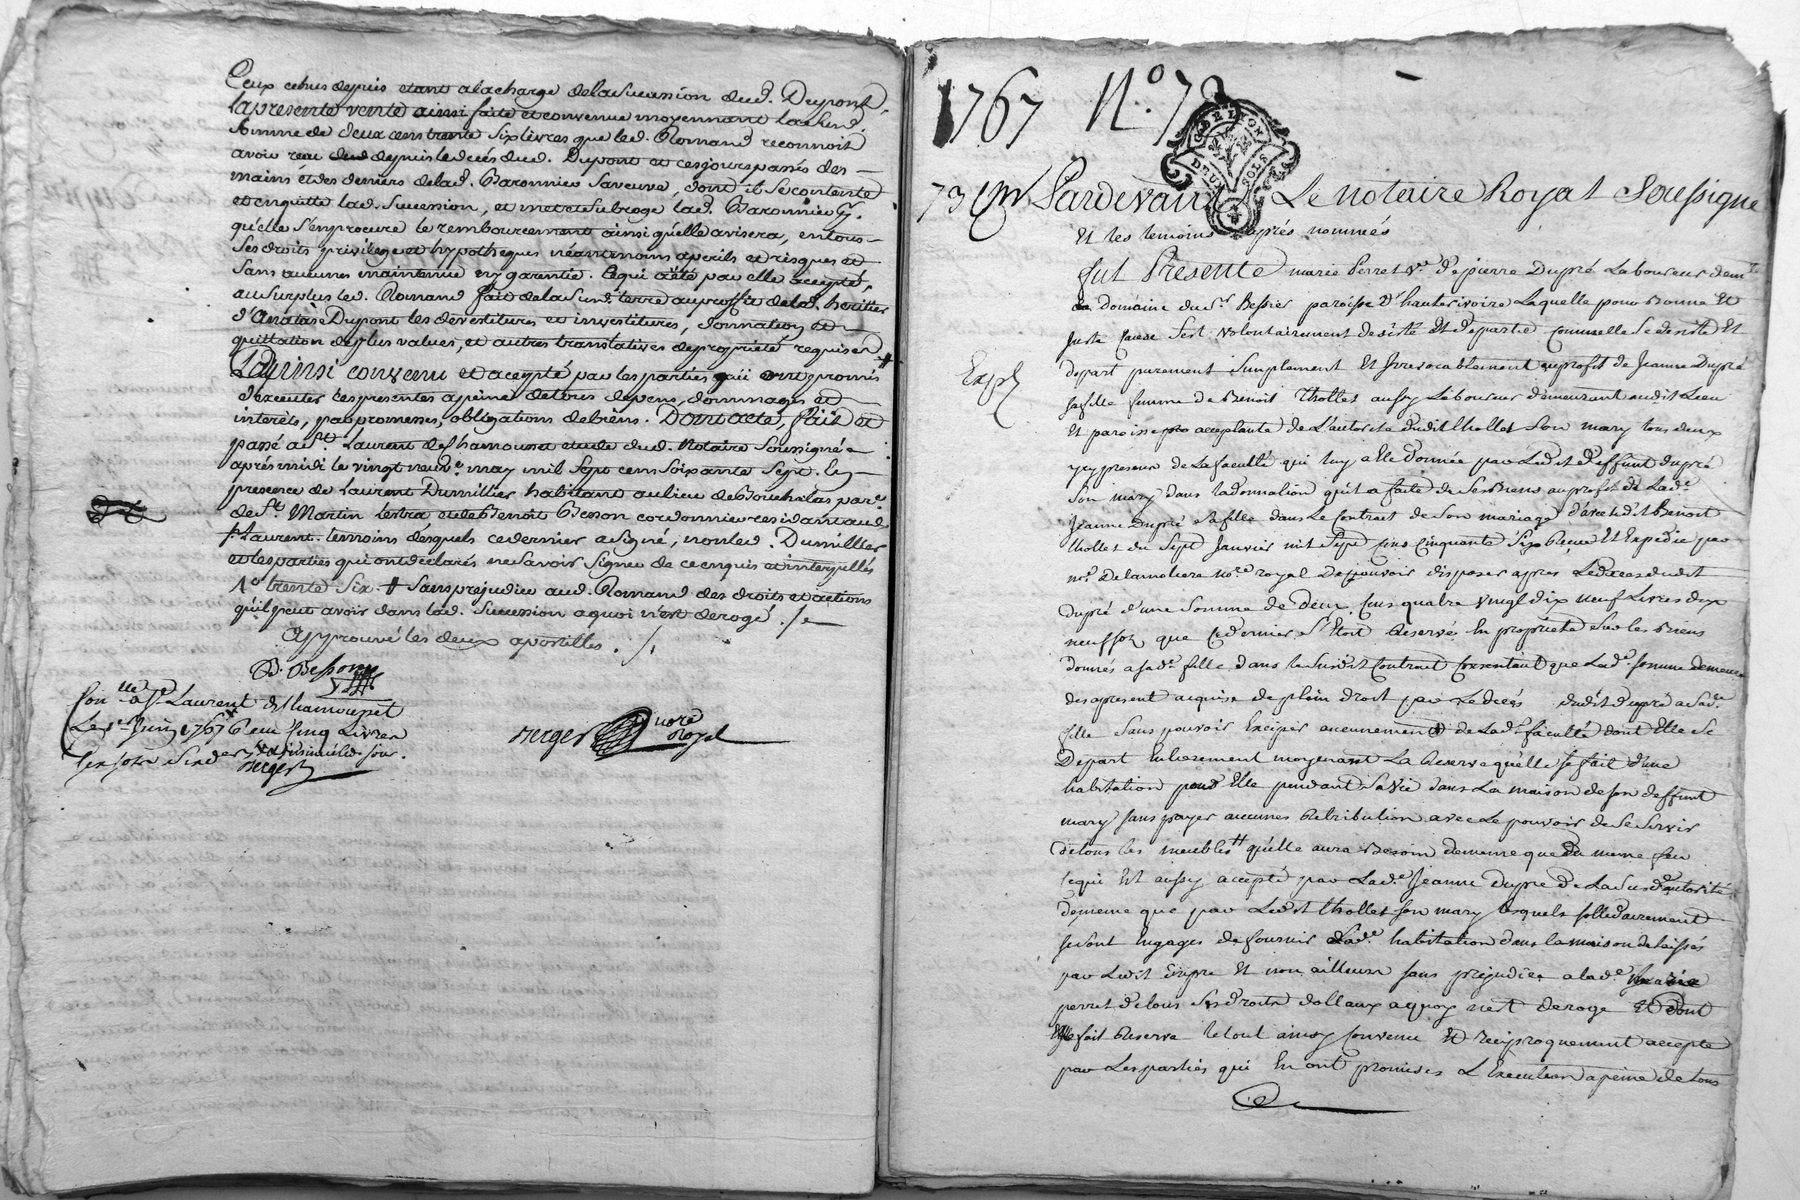 Ceux echus depuis etant a la charge de la succession dud. Dupont,
la presente vente ainsi faite et convenue moyennant la ditte
somme de deux cent trente six livres que led. Romand reconnoit
avoir reçu dud depuis le décès dud. Dupont et ces jours passés des
mains et des deniers de lad. Baronnier sa veuve, dont il se contente
et en quitte lad. succession, et met et subroge lad. Baronnier
qu'elle s'en procure le remboursement ainsi qu'elle avisera, en tous
ses droits privilege et hypotheques néantmoins a perils et risques et
sans aucunes maintenue ny garentie. ce qui a été par elle accepté,
au surplus led. Romand fait de la susd. terre au proffit de lad. heritier
d'Anatase Dupont les devestitures et investitures, donnation et
quittation de plus values, et autres translatives de propriété requises #
Laquinsi convenu et accepté par les parties qui ont promis
d'executer les presentes a peine de tous depens, dommages et
interets, par promesses, obligations de biens. Dont acte, fait et
passé a St. Laurent de Chamousset etude dud. Notaire soussigné
après midi le vingt neufe. may mil sept cens soixante sept. En
presence de Laurent Dumillier habitant au lieu de Bouchalas parr.
de St. Martin lestra et de Benoit Besson cordonnier residant aud
St. Laurent. temoins desquels ce dernier a signé, non led. Dumillier
et les parties qui ont declarés ne savoir signer de ce enquis et interpellés
1°. trente six. # sans prejudice aud. Romand des droits et actions
qu'il peut avoir dans lad. succession a quoi n'est derogé. /.
Approuvé les deux apostilles. /.
B. Besson
Con.lle a St. Laurent de Chamousset
Le 1er Juin 1767 Reçu cinq livres
six sols six den.
Berger
Berger nore
Royal
1767 N.° 73
G. DE LYON
D'EUX SOLS
73 Pardevant Le notaire Royal Soussigné
Et les temoins après nommés
fut Presente marie Perret Ve. de pierre Dupré Laboureur demt.
en domaine du Sr. Bessier paroisse d'hauterivoire Laquelle pour Bonne Et
juste Cause s'est volontairement desisté Et departie Comme elle se desiste Et
Expé
depart purement simplement Et Irrevocablement au profit de Jeanne Dupré
sa fille femme de Benoit Thollet aussy Laboureur demeurant audit Lieu
Et paroisse pro acceptante de L'autorité dudit thollet Son mary tous deux
yey presens de La faculté qui luy a Eté donnée par Ledit deffunt dupré
Son mary dans La donnation qu'il a faite de ses Biens au profit de Lade.
Jeanne Dupré sa fille dans Le Contrat de Son mariage d'avec ledit Benoit
thollet du Sept Janvier mil Sept Cens Cinquante Six Reçue Et Expedié par
me. Delamoliere nore. royal De pouvoir disposer apres Le deces dudit
dupré d'une Somme de deux Cens quatre vingt dix neuf Livres dix
neuf sols que Ce dernier s'Etoit Reservés En propriété Sur les Biens
donnés a sade. fille dans le susdit Contrat Consentant que Lade. somme demeure
des apresent acquise de plein droit par Le deces dudit dupré a Sade.
fille Sans pouvoir Exciper aucunement de Lade. faculté dont Elle Se
Depart Entierement moyenant La Reserve qu'elle se fait d'une
habitation pour Elle pendant Sa vie dans La maison de son deffunt
mary sans payer aucunes Retribution avec Le pouvoir de Se Servir
de tous les meubles # qu'elle aura Besoin de meme que du meme feu
ce qui Est aussy accepté par Lade. Jeanne dupré de La Susde. autorité
de meme que par Ledit thollet son mary Lesquels sollidairement
se sont Engagés de fournir a Lade. habitation dans la maison delaissés
par Ledit dupré Et non ailleurs sans prejudice a lade. marie
perret de tous Ses droits dottaux a quoy n'est derogé Et dont
Elle fait Reserve Le tout ainsy Convenu Et reciproquement accepté
par Les parties qui En ont promises L'Execution a peine de tous